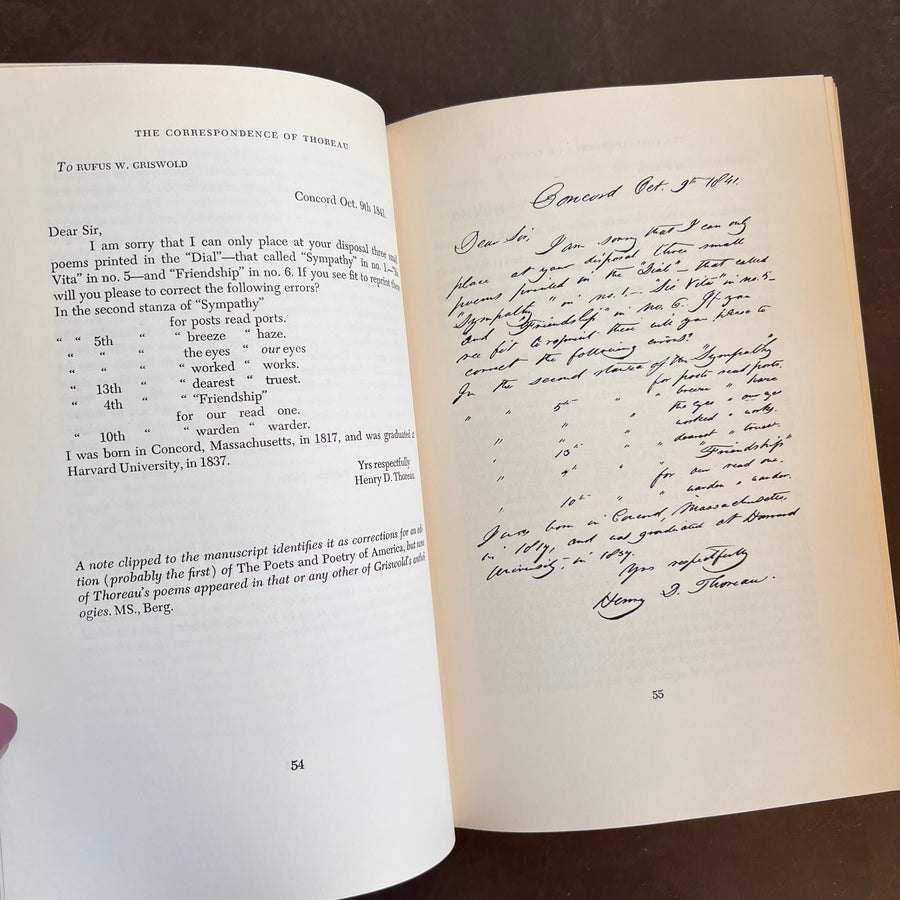 THE CORRESPONDENCE OF THOREAU
To RUFUS W. GRISWOLD
Concord Oct. 9th 1841.
Dear Sir,
I am sorry that I can only place at your disposal three small
poems printed in the "Dial"—that called "Sympathy" in no. 1.—"Sic
Vita" in no. 5—and "Friendship" in no. 6. If you see fit to reprint these
will you please to correct the following errors?
In the second stanza of "Sympathy"
for posts read ports.
“ “ 5th “ “ breeze “ haze.
“ “ “ the eyes “ our eyes
“ “ “ “ worked “ works.
“ 13th “ “ dearest “ truest.
“ 4th “ “Friendship”
for our read one.
“ 10th “ “ warden “ warder.
I was born in Concord, Massachusetts, in 1817, and was graduated at
Harvard University, in 1837.
Yrs respectfully
Henry D. Thoreau.
A note clipped to the manuscript identifies it as corrections for an edi-
tion (probably the first) of The Poets and Poetry of America, but none
of Thoreau's poems appeared in that or any other of Griswold's anthol-
ogies. MS., Berg.
54
Concord Oct. 9th 1841.
Dear Sir,
I am sorry that I can only
place at your disposal three small
poems printed in the "Dial"— that called
"Sympathy" in no. 1.— Sic Vita" in no. 5—
and "Friendship" in no. 6. If you
see fit to reprint these will you please to
correct the following errors?
In the second stanza of the "Sympathy"
for posts read ports.
“ “ 5th “ “ breeze “ haze
“ “ “ the eyes “ our eyes
“ “ “ worked “ works.
“ 13th “ “ dearest “ truest.
“ 4th “ “Friendship”
for our read one.
“ 10th “ “ warden “ warder.
I was born in Concord, Massachusetts,
in 1817, and was graduated at Harvard
University, in 1837.
Yrs respectfully
Henry D. Thoreau.
55